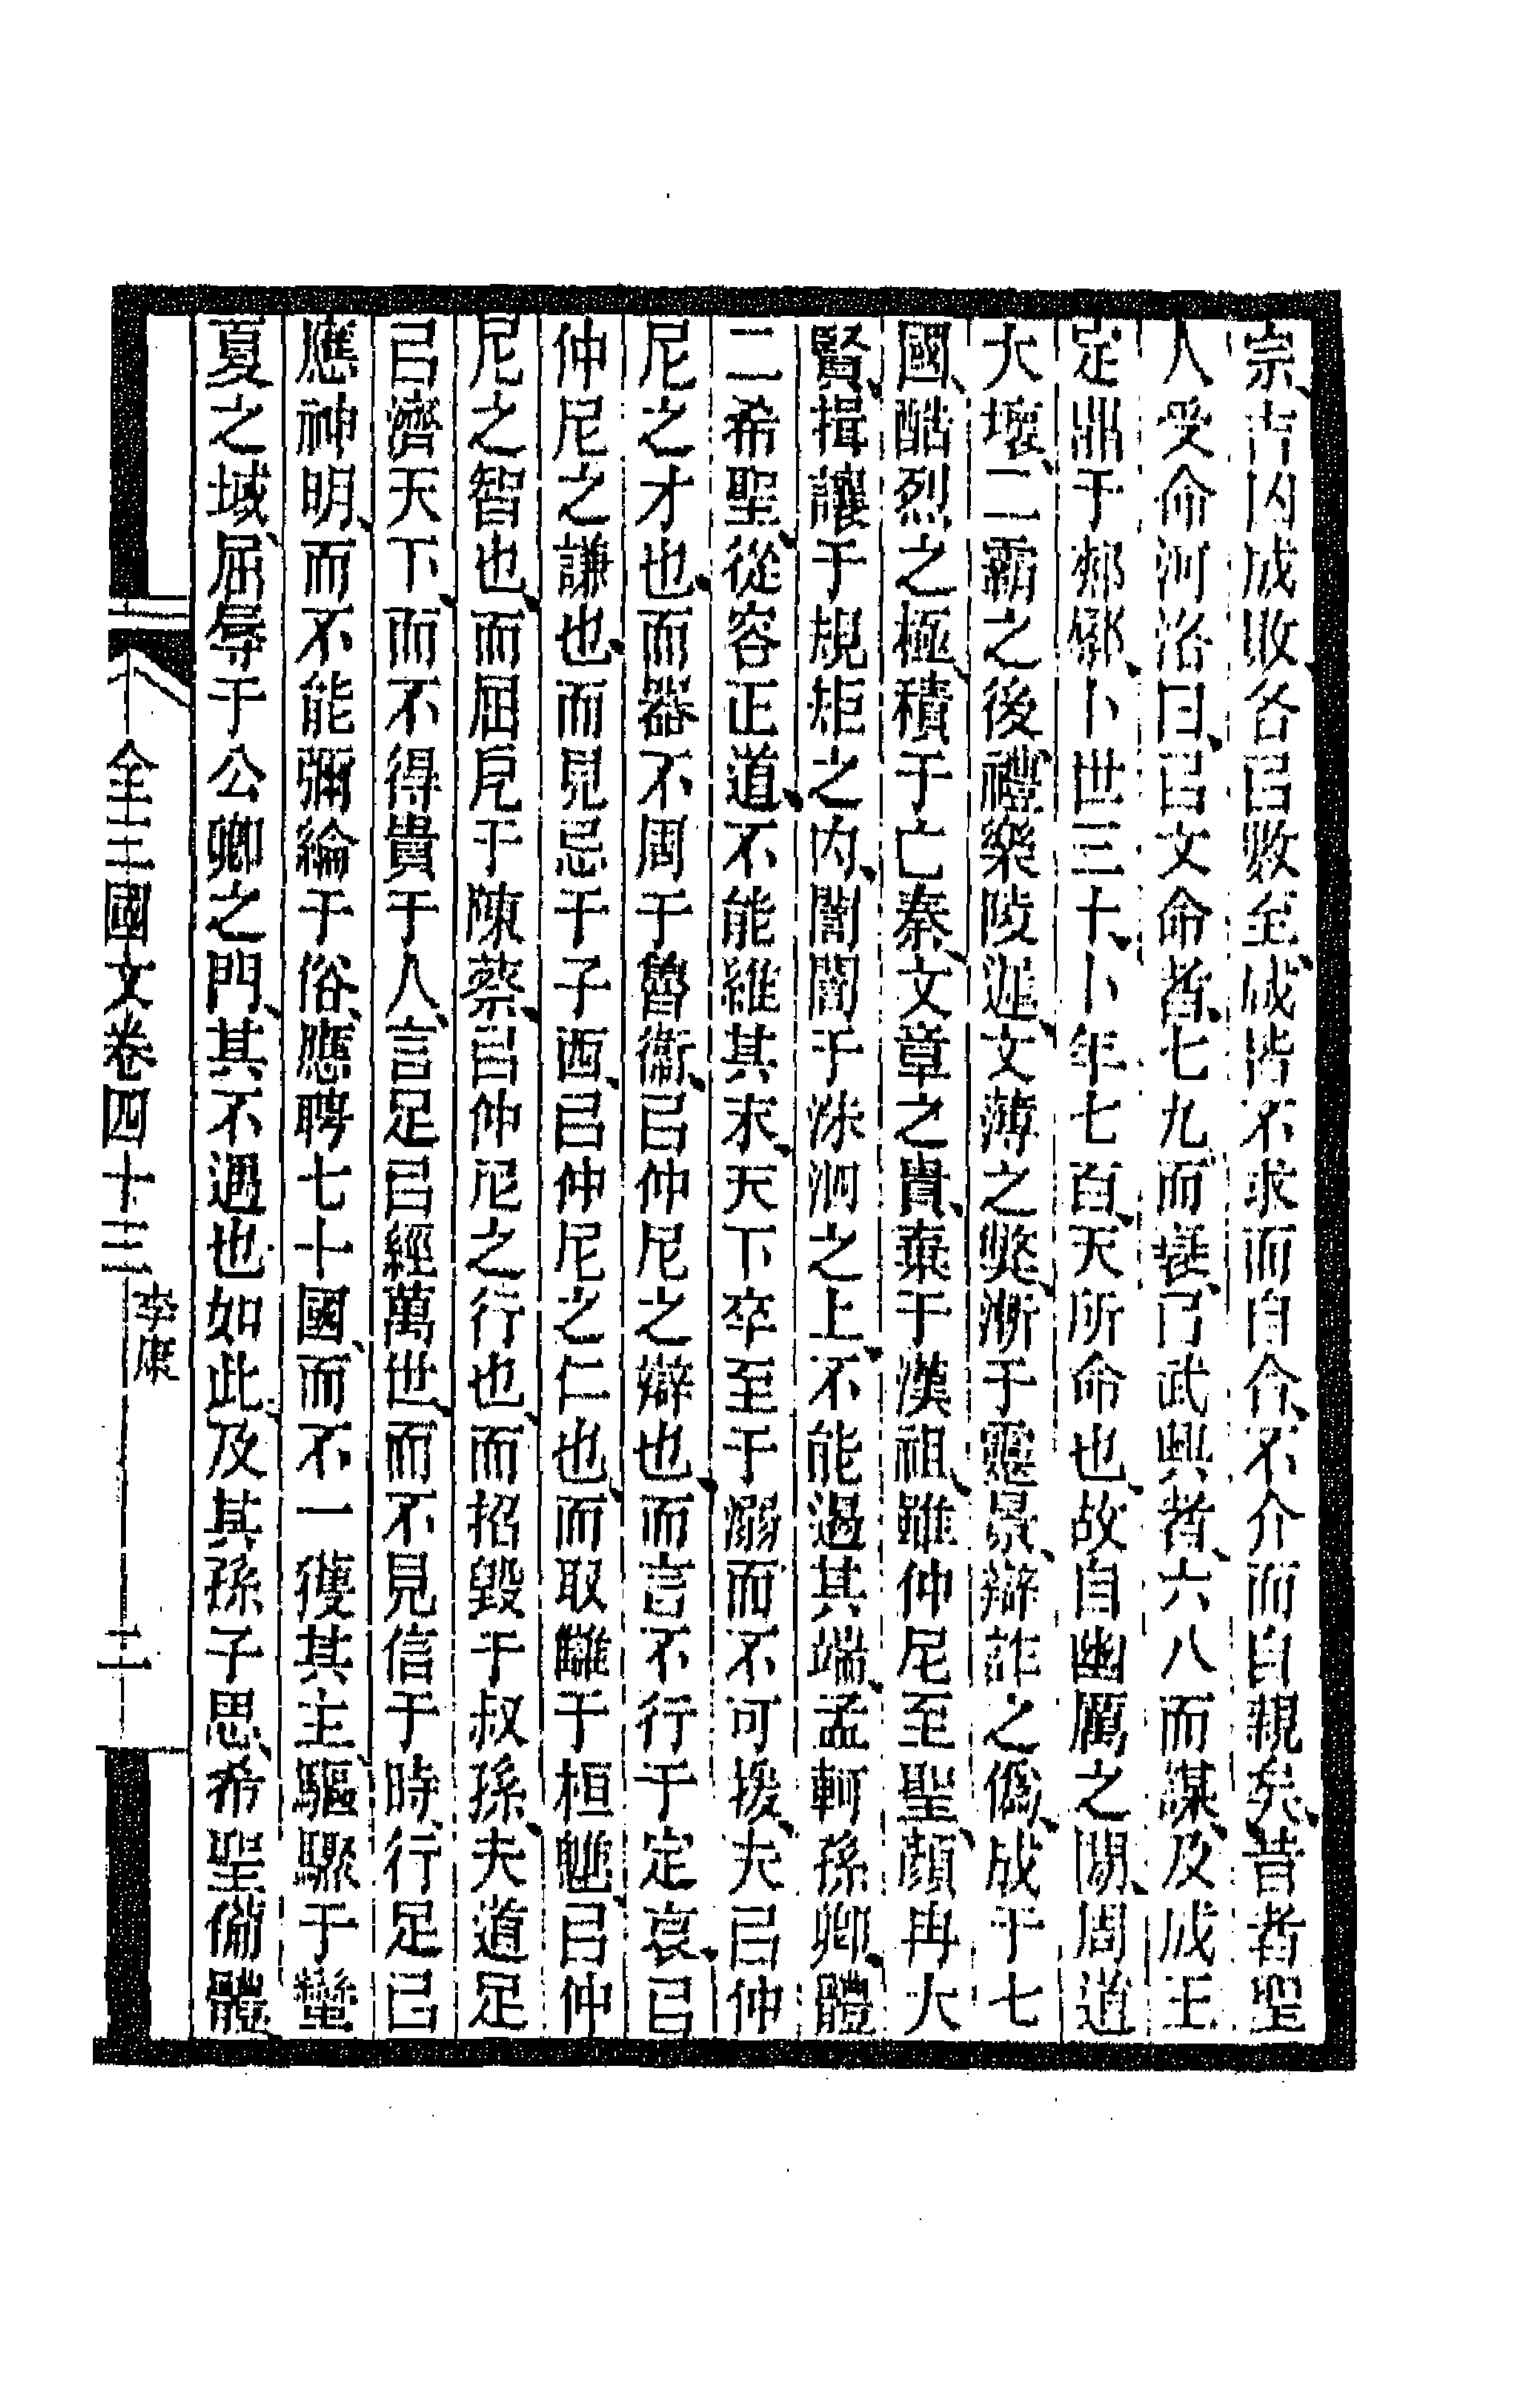 宗、吉凶成敗、各㠯數至、咸皆不求而自合、不介而自親矣、昔者聖
人受命河洛曰、㠯文命者、七九而衰、㠯武興者、六八而謀、及成王
定鼎于郟鄏、卜世三十、卜年七百、天所命也、故自幽厲之閒、周道
大壞、二霸之後、禮樂陵遲、文薄之弊、漸于靈景、辯詐之僞、成于七
國、酷烈之極、積于亡秦、文章之貴、棄于漢祖、雖仲尼至聖、顏冉大
賢、揖讓于規矩之內、誾誾于洙泗之上、不能遏其端、孟軻孫卿、體
二希聖、從容正道、不能維其末、天下卒至于溺而不可援、夫㠯仲
尼之才也、而器不周于魯衞、㠯仲尼之辯也、而言不行于定哀、㠯
仲尼之謙也、而見忌于子西、㠯仲尼之仁也、而取讎于桓魋、㠯仲
尼之智也、而屈戹于陳蔡、㠯仲尼之行也、而招毀于叔孫、夫道足
㠯濟天下、而不得貴于人、言足㠯經萬世、而不見信于時、行足㠯
應神明、而不能彌綸于俗、應聘七十國、而不一獲其主、驅驟于蠻
夏之域、屈辱于公卿之門、其不遇也如此、及其孫子思、希聖備體、
全三國文卷四十三 李康 二